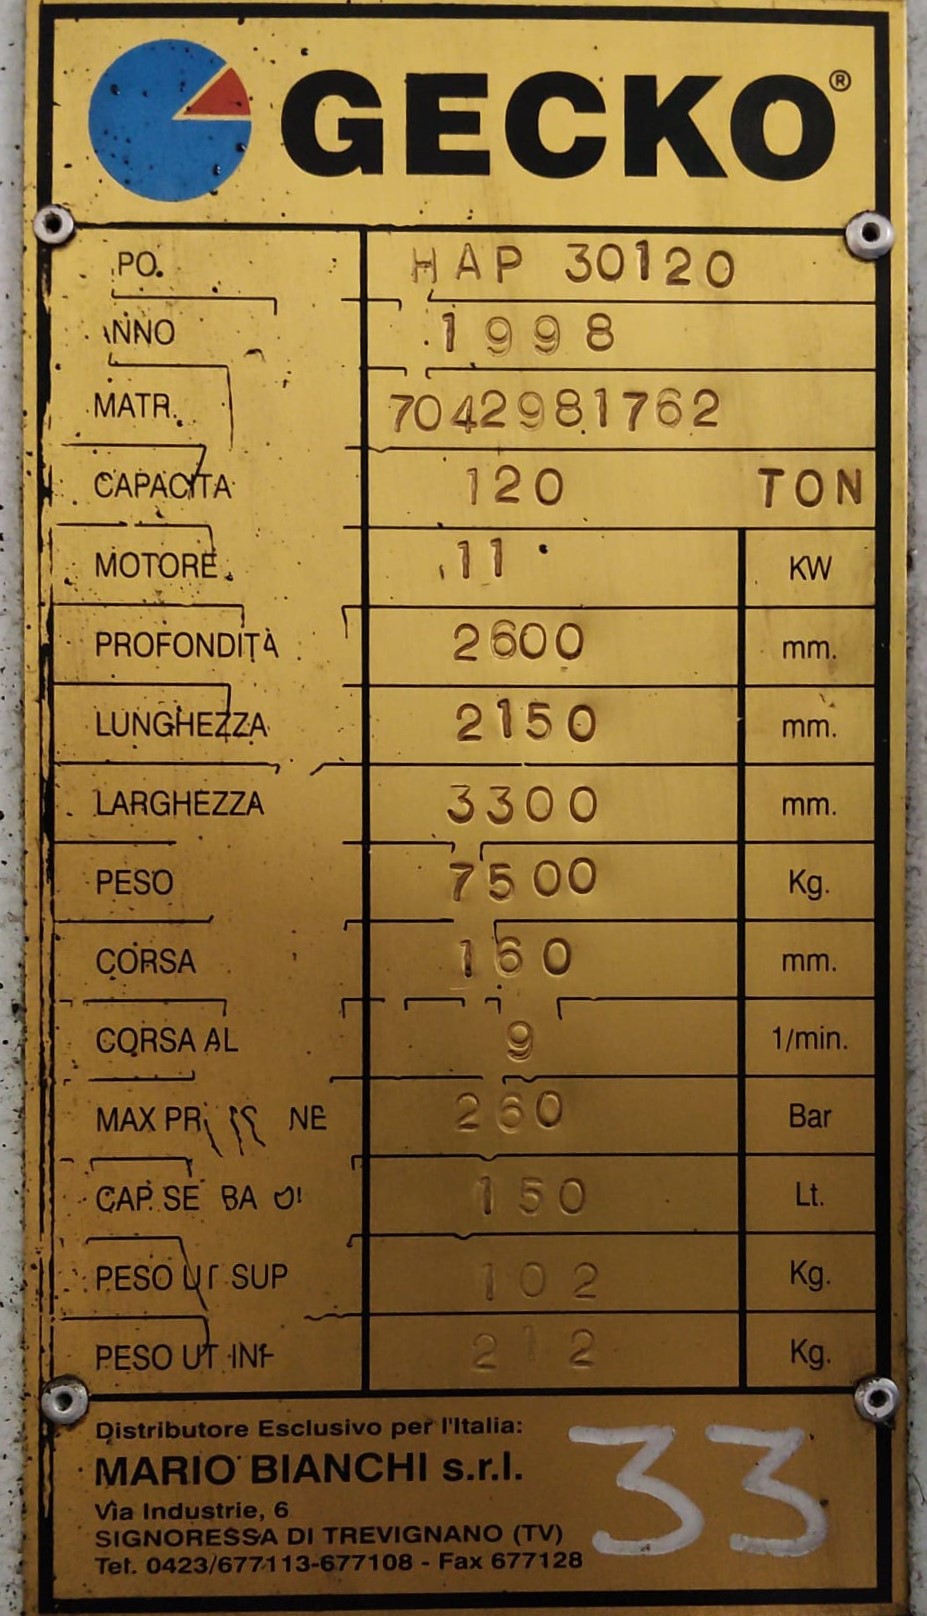 GECKO®
PO. HAP 30120
ANNO 1998
MATR. 7042981762
CAPACITA 120 TON
MOTORE 11 KW
PROFONDITÀ 2600 mm.
LUNGHEZZA 2150 mm.
LARGHEZZA 3300 mm.
PESO 7500 Kg.
CORSA 160 mm.
CORSA AL 9 1/min.
MAX 260 Bar
CAP. SE 150 Lt.
PESO UT SUP 102 Kg.
PESO UT INF 212 Kg.
Distributore Esclusivo per l'Italia:
MARIO BIANCHI s.r.l.
Via Industrie, 6
SIGNORESSA DI TREVIGNANO (TV)
Tel. 0423/677113-677108 - Fax 677128
33